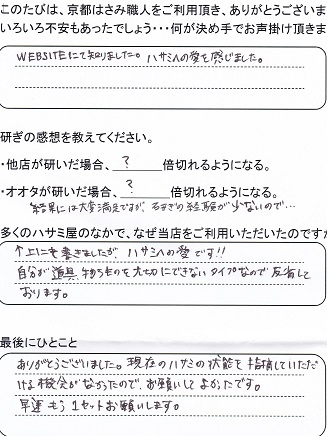 このたびは、京都はさみ職人をご利用頂き、ありがとうございま
いろいろ不安もあったでしょう・・・何が決め手でお声掛け頂きま
WEBSITEにて知りました。ハサミへの愛を感じました。
研ぎの感想を教えてください。
・他店が研いだ場合、?倍切れるようになる。
・オオタが研いだ場合、?倍切れるようになる。
結果には大変満足ですが、研ぎの経験が少ないので…
多くのハサミ屋のなかで、なぜ当店をご利用いただいたのですか
↑上にも書きましたが、ハサミへの愛です!!
自分が道具、物持ちものを大切にできないタイプなので反省して
おります。
最後にひとこと
ありがとうございました。現在のハサミの状態を指摘していただ
ける機会がなかったので、お願いしてよかったです。
早速もう1セットお願いします。